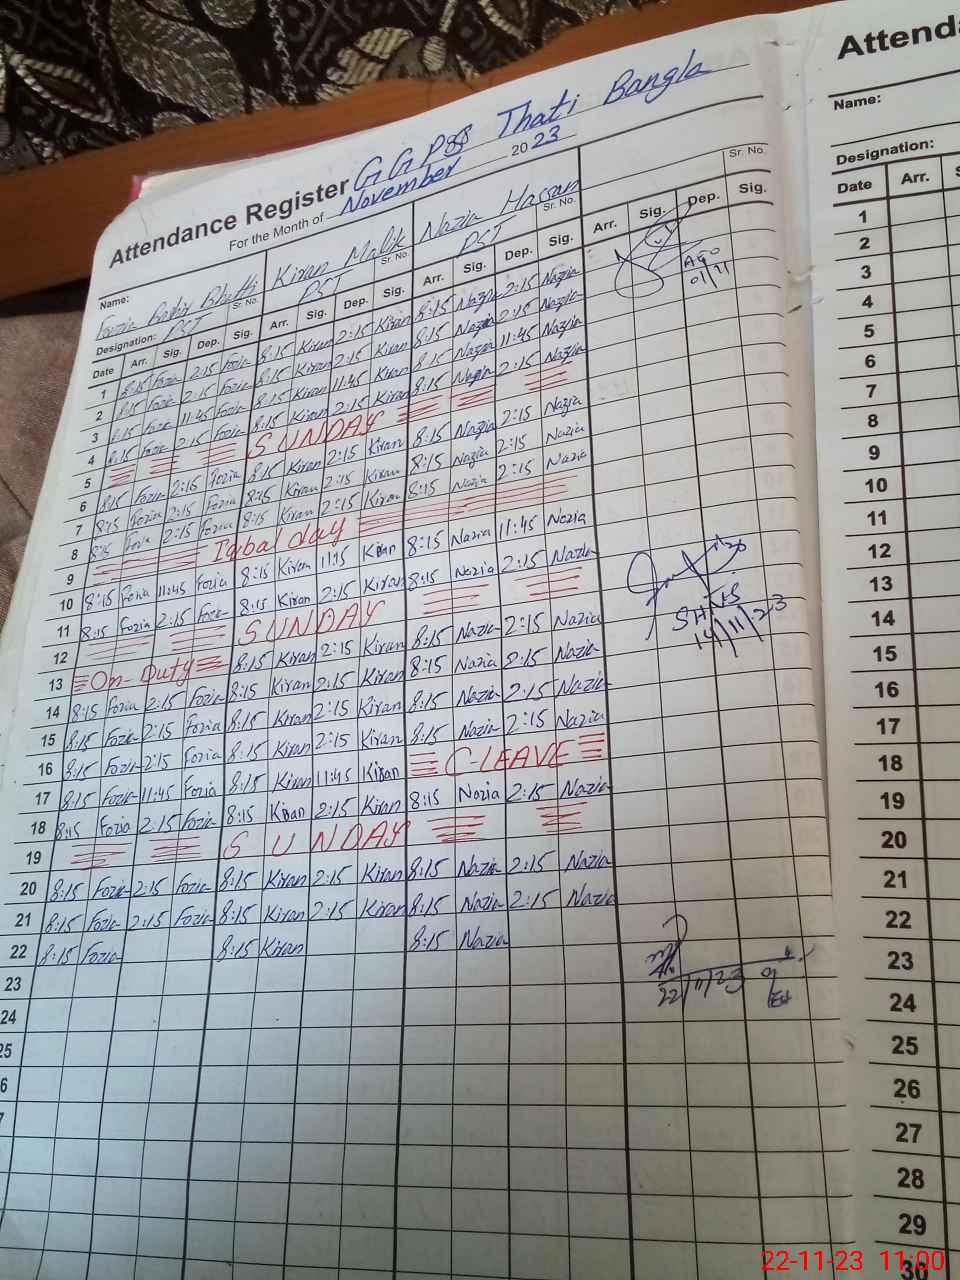 Attendance Register GGPS Thati Bangla
For the Month of November 2023
Name: Fozia Bashir Bhatti Kiran Malik Nazia Hassan
Designation: PST Sr. No. PST Sr. No. PST Sr. No. Sr. No.
Date Arr. Sig. Dep. Sig. Arr. Sig. Dep. Sig. Arr. Sig. Dep. Sig. Arr. Sig. Dep. Sig.
1 8:15 Fozia 2:15 Fozia 8:15 Kiran 2:15 Kiran 8:15 Nazia 2:15 Nazia
2 8:15 Fozia 2:15 Fozia 8:15 Kiran 2:15 Kiran 8:15 Nazia 2:15 Nazia
3 8:15 Fozia 11:45 Fozia 8:15 Kiran 11:45 Kiran 8:15 Nazia 11:45 Nazia
4 8:15 Fozia 2:15 Fozia 8:15 Kiran 2:15 Kiran 8:15 Nazia 2:15 Nazia
5 SUNDAY
6 8:15 Fozia 2:15 Fozia 8:15 Kiran 2:15 Kiran 8:15 Nazia 2:15 Nazia
7 8:15 Fozia 2:15 Fozia 8:15 Kiran 2:15 Kiran 8:15 Nazia 2:15 Nazia
8 8:15 Fozia 2:15 Fozia 8:15 Kiran 2:15 Kiran 8:15 Nazia 2:15 Nazia
9 Iqbal day
10 8:15 Fozia 11:45 Fozia 8:15 Kiran 11:15 Kiran 8:15 Nazia 11:45 Nazia
11 8:15 Fozia 2:15 Fozia 8:15 Kiran 2:15 Kiran 8:15 Nazia 2:15 Nazia
12 SUNDAY
13 On-Duty 8:15 Kiran 2:15 Kiran 8:15 Nazia 2:15 Nazia
14 8:15 Fozia 2:15 Fozia 8:15 Kiran 2:15 Kiran 8:15 Nazia 2:15 Nazia
15 8:15 Fozia 2:15 Fozia 8:15 Kiran 2:15 Kiran 8:15 Nazia 2:15 Nazia
16 8:15 Fozia 2:15 Fozia 8:15 Kiran 2:15 Kiran 8:15 Nazia 2:15 Nazia
17 8:15 Fozia 11:45 Fozia 8:15 Kiran 11:45 Kiran C-LEAVE
18 8:15 Fozia 2:15 Fozia 8:15 Kiran 2:15 Kiran 8:15 Nazia 2:15 Nazia
19 SUNDAY
20 8:15 Fozia 2:15 Fozia 8:15 Kiran 2:15 Kiran 8:15 Nazia 2:15 Nazia
21 8:15 Fozia 2:15 Fozia 8:15 Kiran 2:15 Kiran 8:15 Nazia 2:15 Nazia
22 8:15 Fozia 8:15 Kiran 8:15 Nazia
23
24
25
6
7
AEO
01/11
14/11/23
22/11/23
Attenda
Name:
Designation:
Date Arr. S
1
2
3
4
5
6
7
8
9
10
11
12
13
14
15
16
17
18
19
20
21
22
23
24
25
26
27
28
29
30
22-11-23 11:00